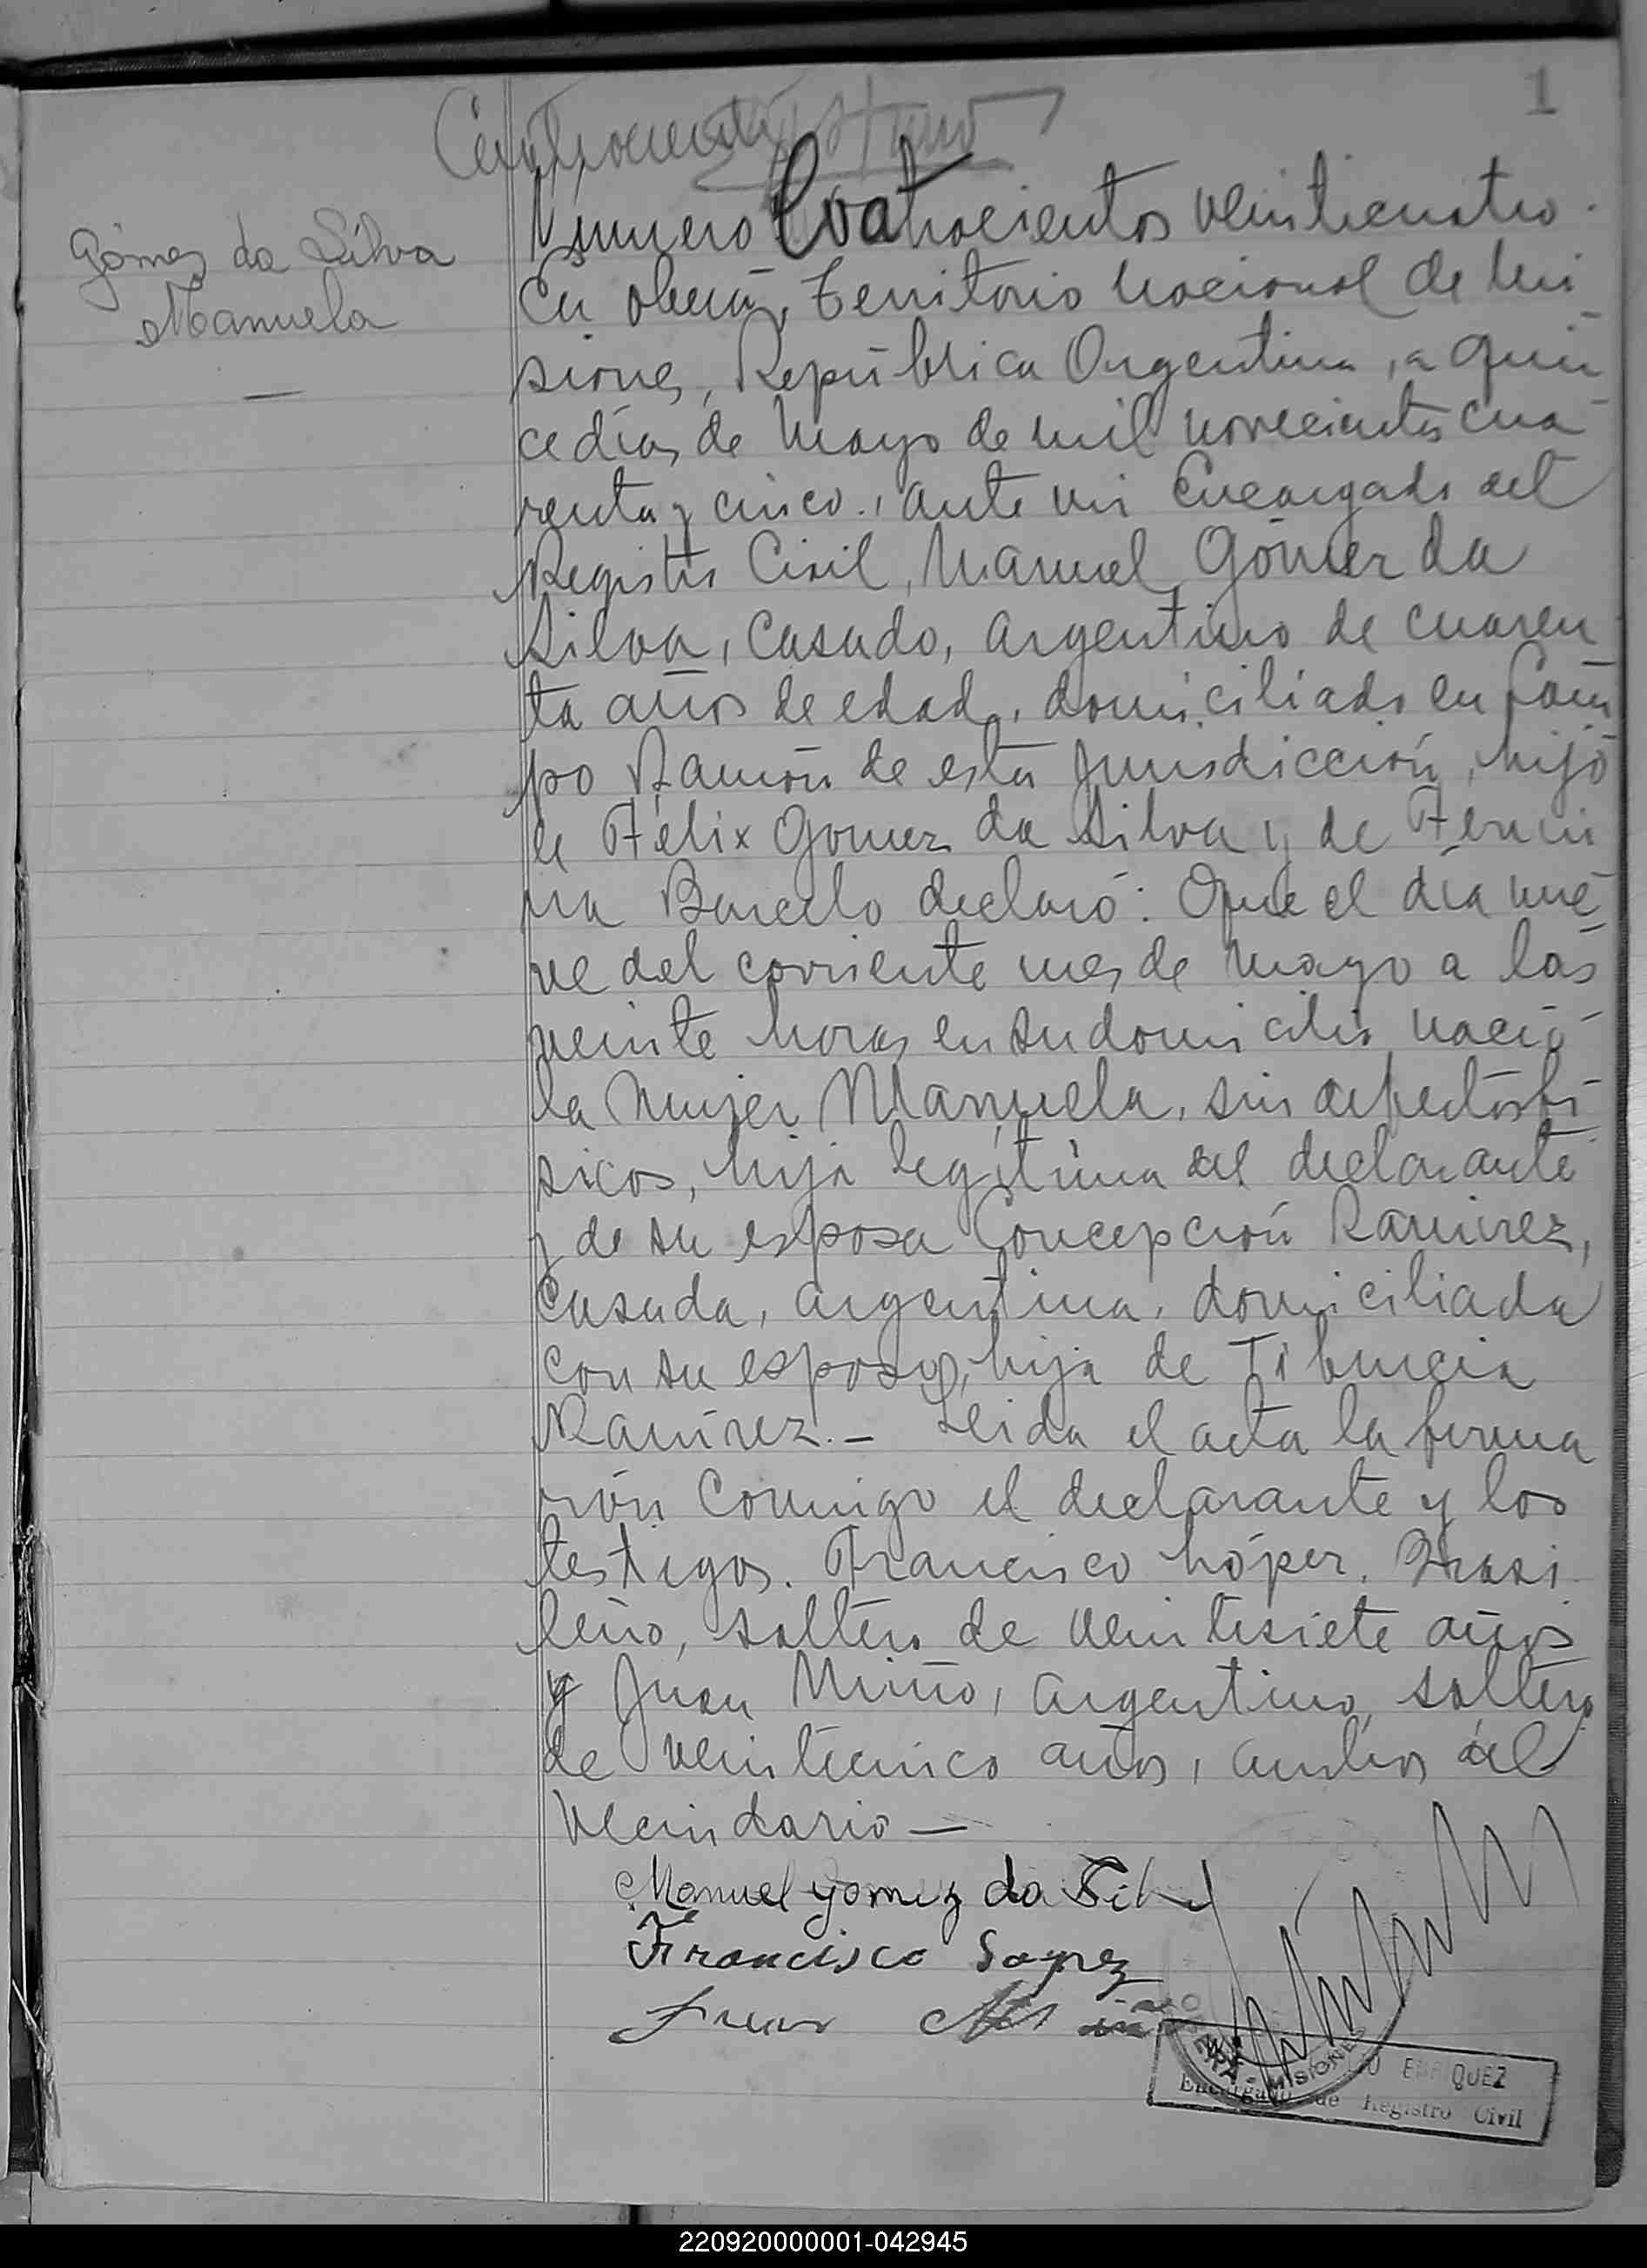 1
Número Cuatrocientos veinticuatro.
Gómez da Silva
Manuela
En Oberá, Territorio Nacional de Mi
siones, República Argentina, a quin
ce días de Mayo de mil novecientos cua
renta y cinco., ante mi Encargado del
Registro Civil, Manuel Gómez da
Silva, Casado, argentino de cuaren
ta años de edad, domiciliado en Cam
po Ramón de esta Jurisdicción, hijo
de Félix Gomez da Silva y de Fermi
na Barcelo declaró: Que el día nue
ve del corriente mes de Mayo a las
veinte horas en su domicilio nació
la mujer Manuela, sin defectos fí
sicos, hija legítima del declarante
y de su esposa Concepción Ramirez,
Casada, argentina, domiciliada
con su esposo, hija de Tiburcia
Ramírez.- Leida el acta la firma
rón conmigo el declarante y los
testigos. Francisco López, Brasi
leño, soltero de veintisiete años
y Juan Miño, argentino, soltero
de veinticinco años, ambos del
vecindario —
Manuel gomez da Silva
Francisco Lopez
Juan Miño
OBERA - MISIONES
ENRIQUEZ
Encargado de Registro Civil
220920000001-042945